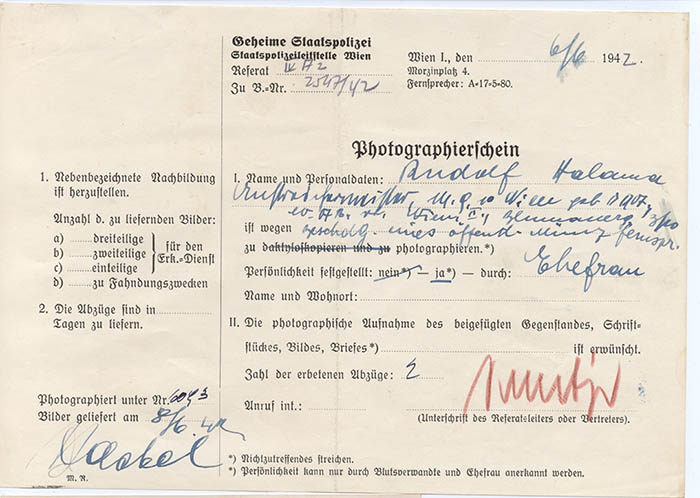 Geheime Staatspolizei
Staatspolizeileitstelle Wien
Referat IV A 2
Zu B.=Nr. 2547/42
Wien I., den 6/6 1942.
Morzinplatz 4.
Fernsprecher: A=17=5=80.
Photographierschein
1. Nebenbezeichnete Nachbildung
ist herzustellen.
Anzahl d. zu liefernden Bilder:
a) dreiteilige
b) zweiteilige
c) einteilige
für den
Erk.=Dienst
d) zu Fahndungszwecken
2. Die Abzüge sind in
Tagen zu liefern.
Photographiert unter Nr.
Bilder geliefert am 8/6.42
M. R.
I. Name und Personaldaten: Rudolf Halama
Anstreichermeister, Wien geb.
Wien
ist wegen öffentl. Münzfernspr.
zu daktyloskopieren und zu photographieren.*)
Persönlichkeit festgestellt: nein*) — ja*) — durch: Ehefrau
Name und Wohnort:
II. Die photographische Aufnahme des beigefügten Gegenstandes, Schrift=
stückes, Bildes, Briefes*) ist erwünscht.
Zahl der erbetenen Abzüge: 2
Anruf int.:
(Unterschrift des Referatsleiters oder Vertreters).
*) Nichtzutreffendes streichen.
*) Persönlichkeit kann nur durch Blutsverwandte und Ehefrau anerkannt werden.